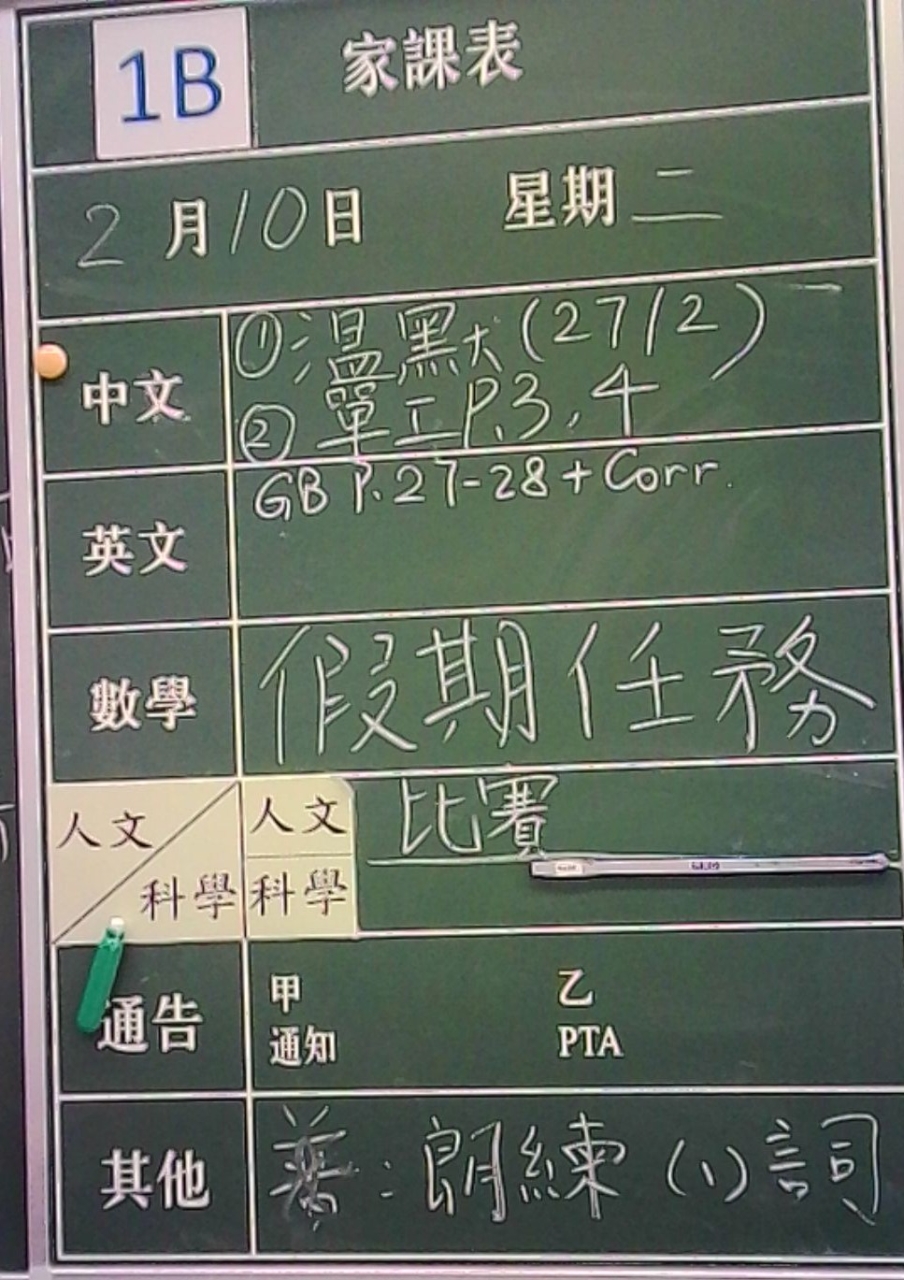 1B 家課表
2月10日 星期二
中文 ①溫默(27/2)
②單工P.3,4
英文 GB P.27-28+Corr.
數學 假期任務
人文 人文 比賽
科學 科學
通告 甲 乙
通知 PTA
其他 普:朗練(1)詞